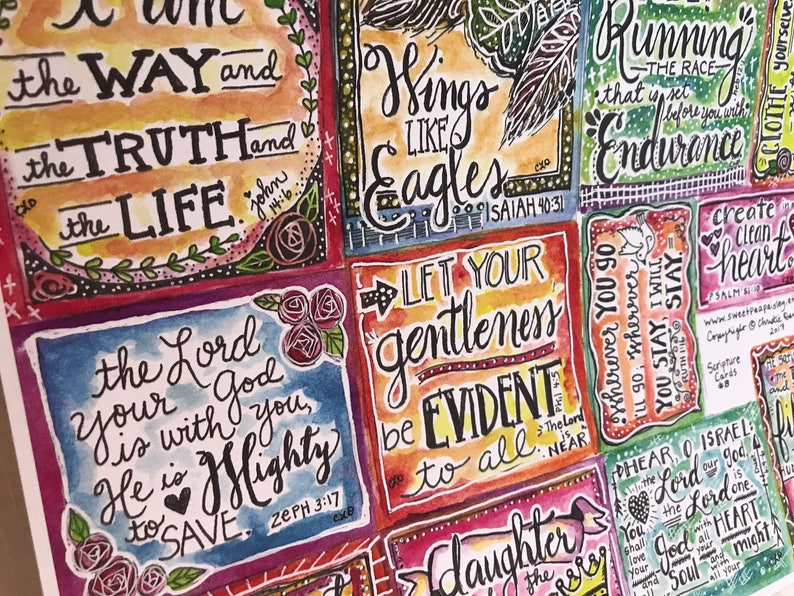 I am
the WAY and
the TRUTH and
the LIFE.
john
14:6
CXD
Wings
LIKE
Eagles
CXD
ISAIAH 40:31
RUNNING
THE RACE
that is set
before you with
Endurance
CLOTHE yourselves
the Lord
Your God
is with you,
He is Mighty
to SAVE.
ZEPH 3:17
CXD
LET YOUR
gentleness
be EVIDENT
to all.
Phil 4:5
The Lord
is
NEAR
CXD
wherever YOU GO
I'LL GO, wherever
YOU STAY, I WILL
STAY
create in
clean
heart
PSALM 51:10
www.sweetpeapaisley.et
Copyright © Christie
2017
Scripture
Cards
#8
HEAR, O ISRAEL:
the Lord our God,
the Lord is one.
You
shall
love
your
God with all your HEART
and
soul and
with all
your might
daughter
the